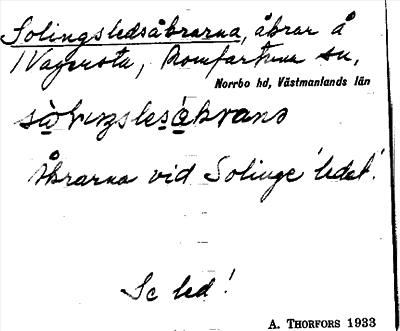 Solingsledsåkrarna, åkrar å
Vagersta, Romfartuna sn,
Norrbo hd, Västmanlands län
Åkrarna vid Solinge 'ledet'.
Se led!
A. Thorfors 1933